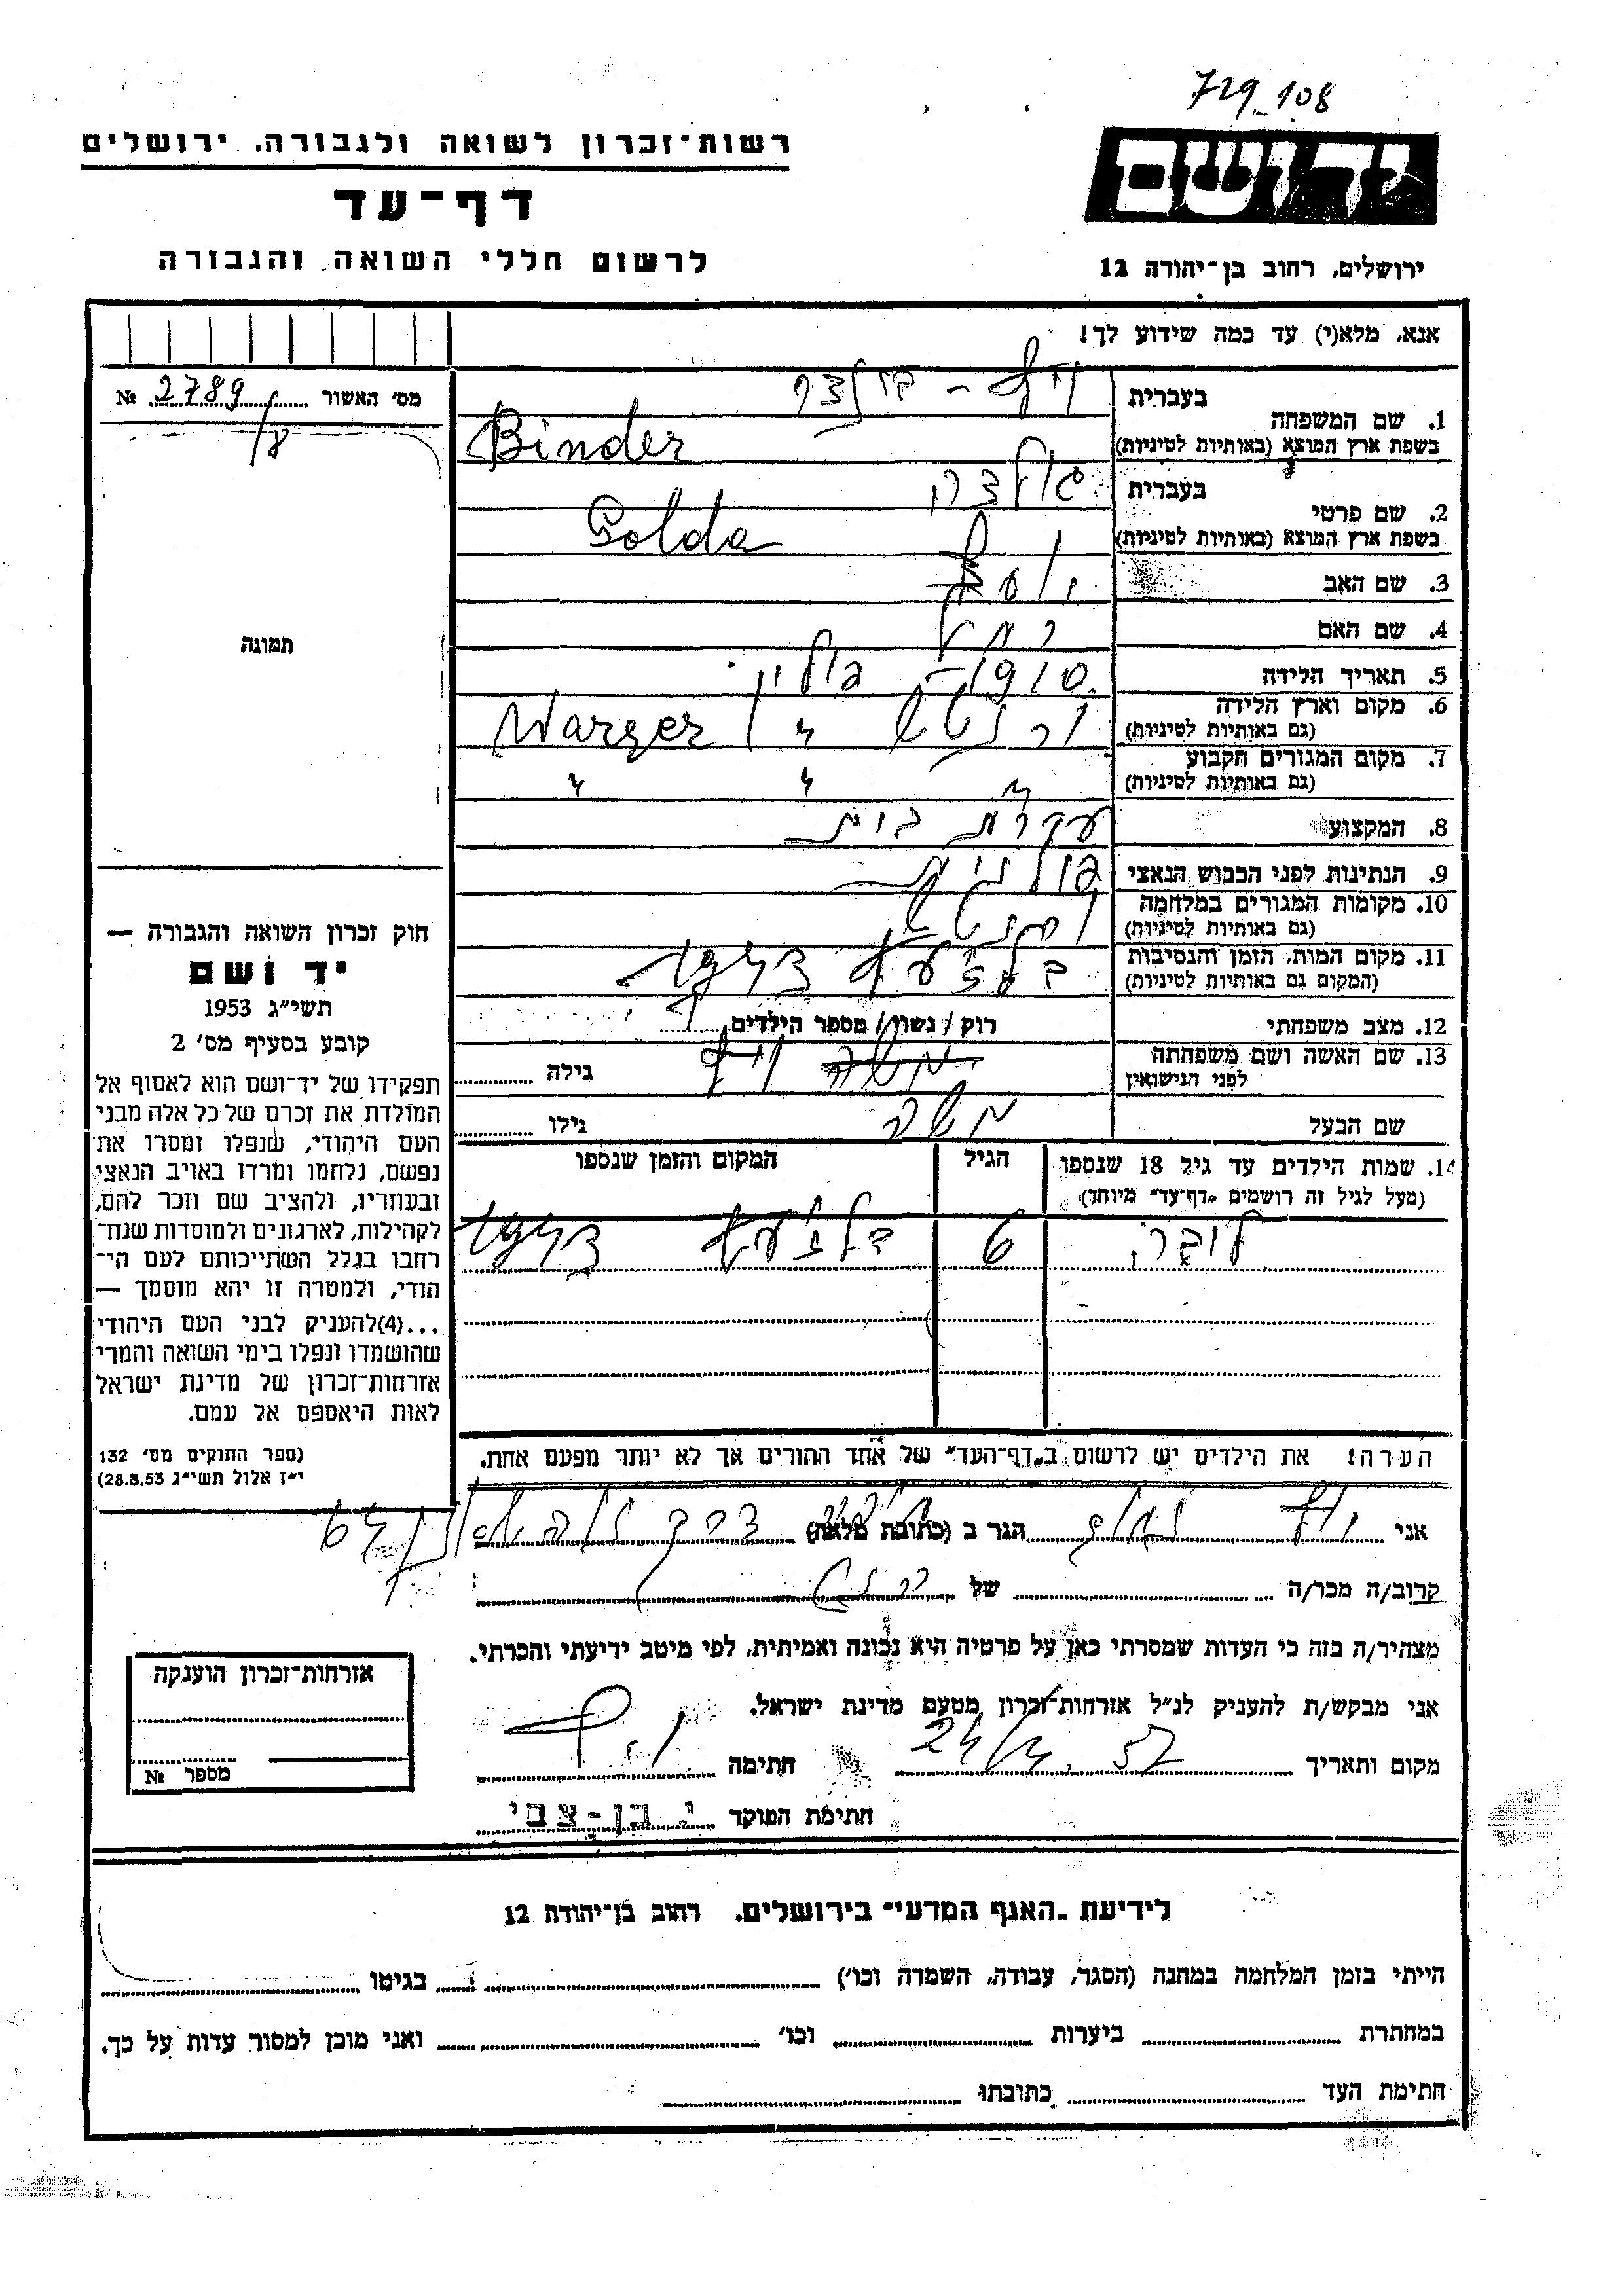 729 108
רשות־זכרון לשואה ולגבורה, ירושלים
יד ושם
דף־עד
לרשום חללי השואה והגבורה
ירושלים, רחוב בן־יהודה 12
אנא, מלא(י) עד כמה שידוע לך!
מס׳ האשור № 2789
1. שם המשפחה
בעברית
בשפת ארץ המוצא (באותיות לטיניות) Binder
2. שם פרטי
בעברית גולדה
בשפת ארץ המוצא (באותיות לטיניות) Golda
3. שם האב יוסף
4. שם האם רחל
5. תאריך הלידה 1910 – פולין
6. מקום וארץ הלידה
(גם באותיות לטיניות)
7. מקום המגורים הקבוע
(גם באותיות לטיניות) " "
8. המקצוע עקרת בית
9. הנתינות לפני הכבוש הנאצי פולנית
10. מקומות המגורים במלחמה
(גם באותיות לטיניות)
11. מקום המות, הזמן והנסיבות
(המקום גם באותיות לטיניות) בלזעץ ב־1942
12. מצב משפחתי רוק / נשוי / מספר הילדים
13. שם האשה ושם משפחתה
לפני הנישואין גילה
שם הבעל משה גילו
14. שמות הילדים עד גיל 18 שנספו
(מעל לגיל זה רושמים „דף־עד״ מיוחד)
הגיל
המקום והזמן שנספו
6 בלזעץ
הערה! את הילדים יש לרשום ב„דף־העד״ של אחד ההורים אך לא יותר מפעם אחת.
תמונה
חוק זכרון השואה והגבורה —
יד ושם
תשי״ג 1953
קובע בסעיף מס׳ 2
תפקידו של יד־ושם הוא לאסוף אל
המולדת את זכרם של כל אלה מבני
העם היהודי, שנפלו ומסרו את
נפשם, נלחמו ומרדו באויב הנאצי
ובעוזריו, ולהציב שם וזכר להם,
לקהילות, לארגונים ולמוסדות שנח־
רחבו בגלל השתייכותם לעם הי־
הודי, ולמטרה זו יהא מוסמך —
...(4)להעניק לבני העם היהודי
שהושמדו ונפלו בימי השואה והמרי
אזרחות־זכרון של מדינת ישראל
לאות היאספם אל עמם.
(ספר החוקים מס׳ 132
י״ז אלול תשי״ג 28.8.53)
אני הגר ב (כתובת מלאה)
קרוב/ה מכר/ה של
מצהיר/ה בזה כי העדות שמסרתי כאן על פרטיה היא נכונה ואמיתית, לפי מיטב ידיעתי והכרתי.
אני מבקש/ת להעניק לנ״ל אזרחות־זכרון מטעם מדינת ישראל.
מקום ותאריך חתימה
חתימת הפוקד י. בן-צבי
אזרחות־זכרון הוענקה
מספר №
לידיעת „האגף המדעי״ בירושלים, רחוב בן־יהודה 12
הייתי בזמן המלחמה במחנה (הסגר, עבודה, השמדה וכו׳) בגיטו
במחתרת ביערות וכו׳ ואני מוכן למסור עדות על כך.
חתימת העד כתובתו